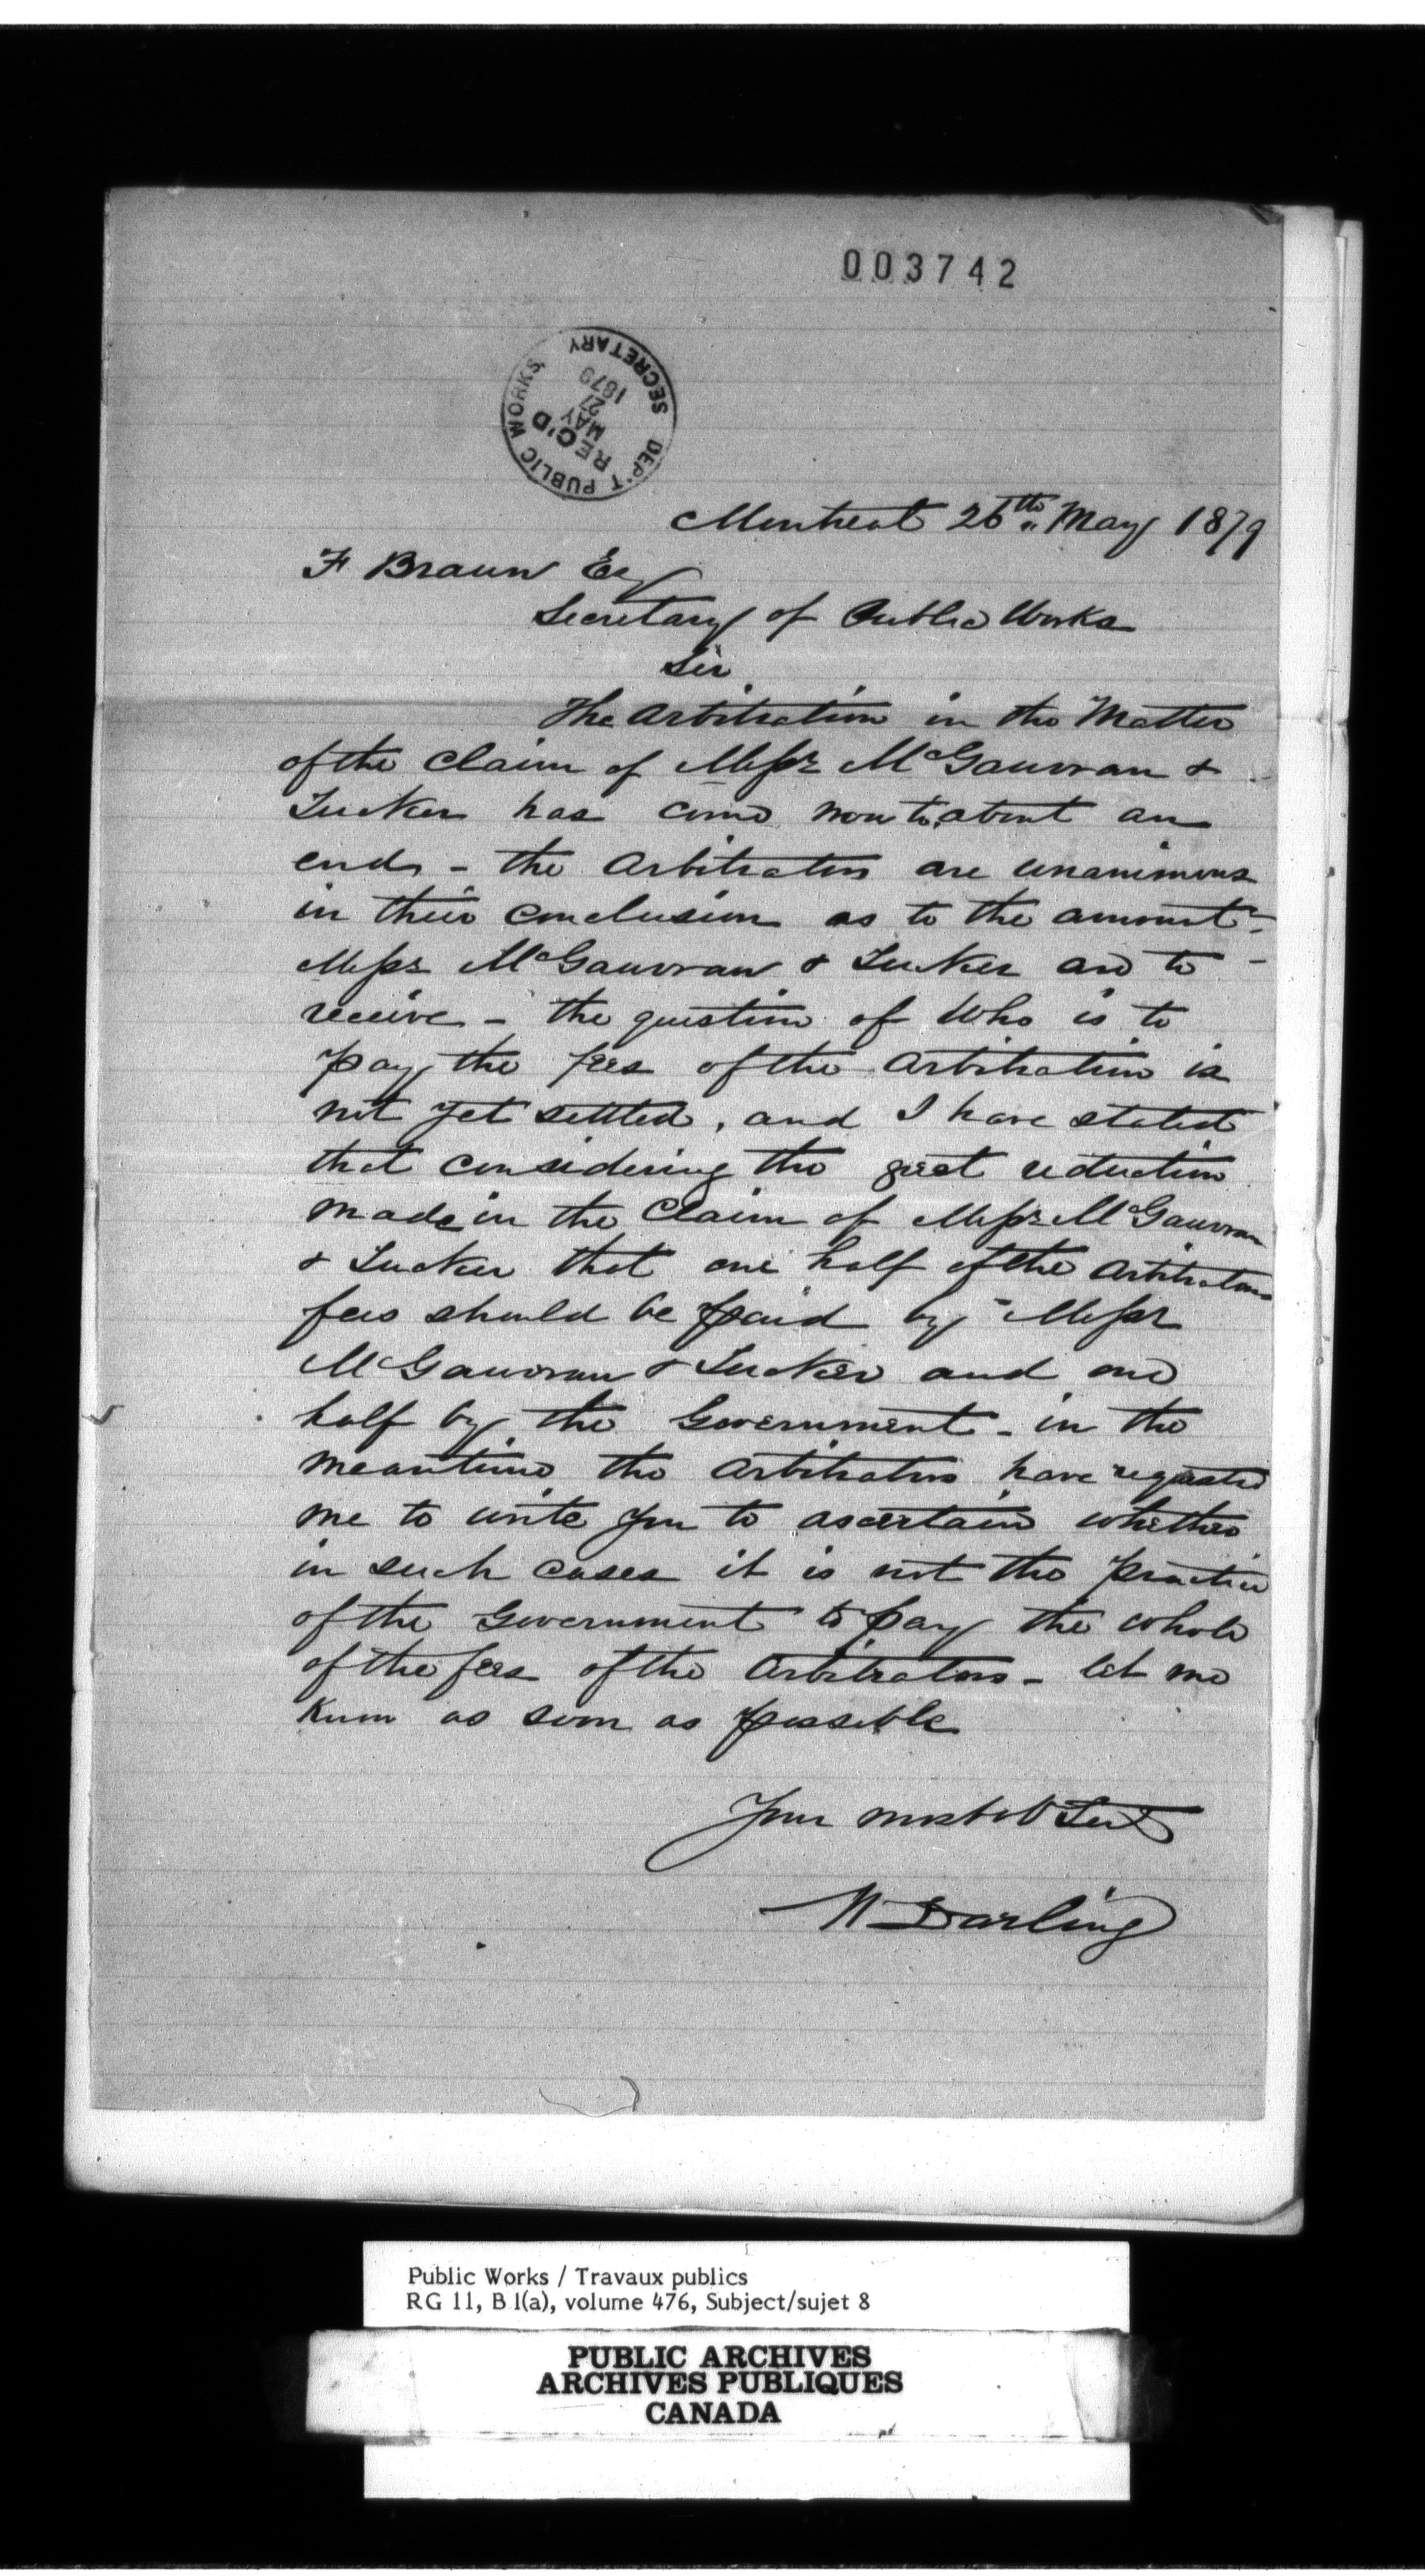 003742
DEP'T PUBLIC WORKS
SECRETARY
REC'D
MAY
27
1879
Montreal 26th May 1879
F Braun Esq
Secretary of Public Works
Sir
The Arbitration in the Matter
of the Claim of Messr McGauvran &
Tucker has come now to about an
end - the Arbitrators are unanimous
in their conclusion as to the amount
Messr McGauvran & Tucker are to
receive - the question of Who is to
pay the fees of the Arbitration is
not yet settled, and I have stated
that considering the great reduction
made in the Claim of Messr McGauvran
& Tucker that one half of the Arbitrators
fees should be paid by Messr
McGauvran & Tucker and one
half by the Government - in the
meantime the Arbitrators have requested
me to write you to ascertain whether
in such cases it is not the practice
of the Government to pay the whole
of the fees of the Arbitrators - let me
know as soon as possible
Your most ob Sert
W Darling
Public Works / Travaux publics
RG 11, B 1(a), volume 476, Subject/sujet 8
PUBLIC ARCHIVES
ARCHIVES PUBLIQUES
CANADA